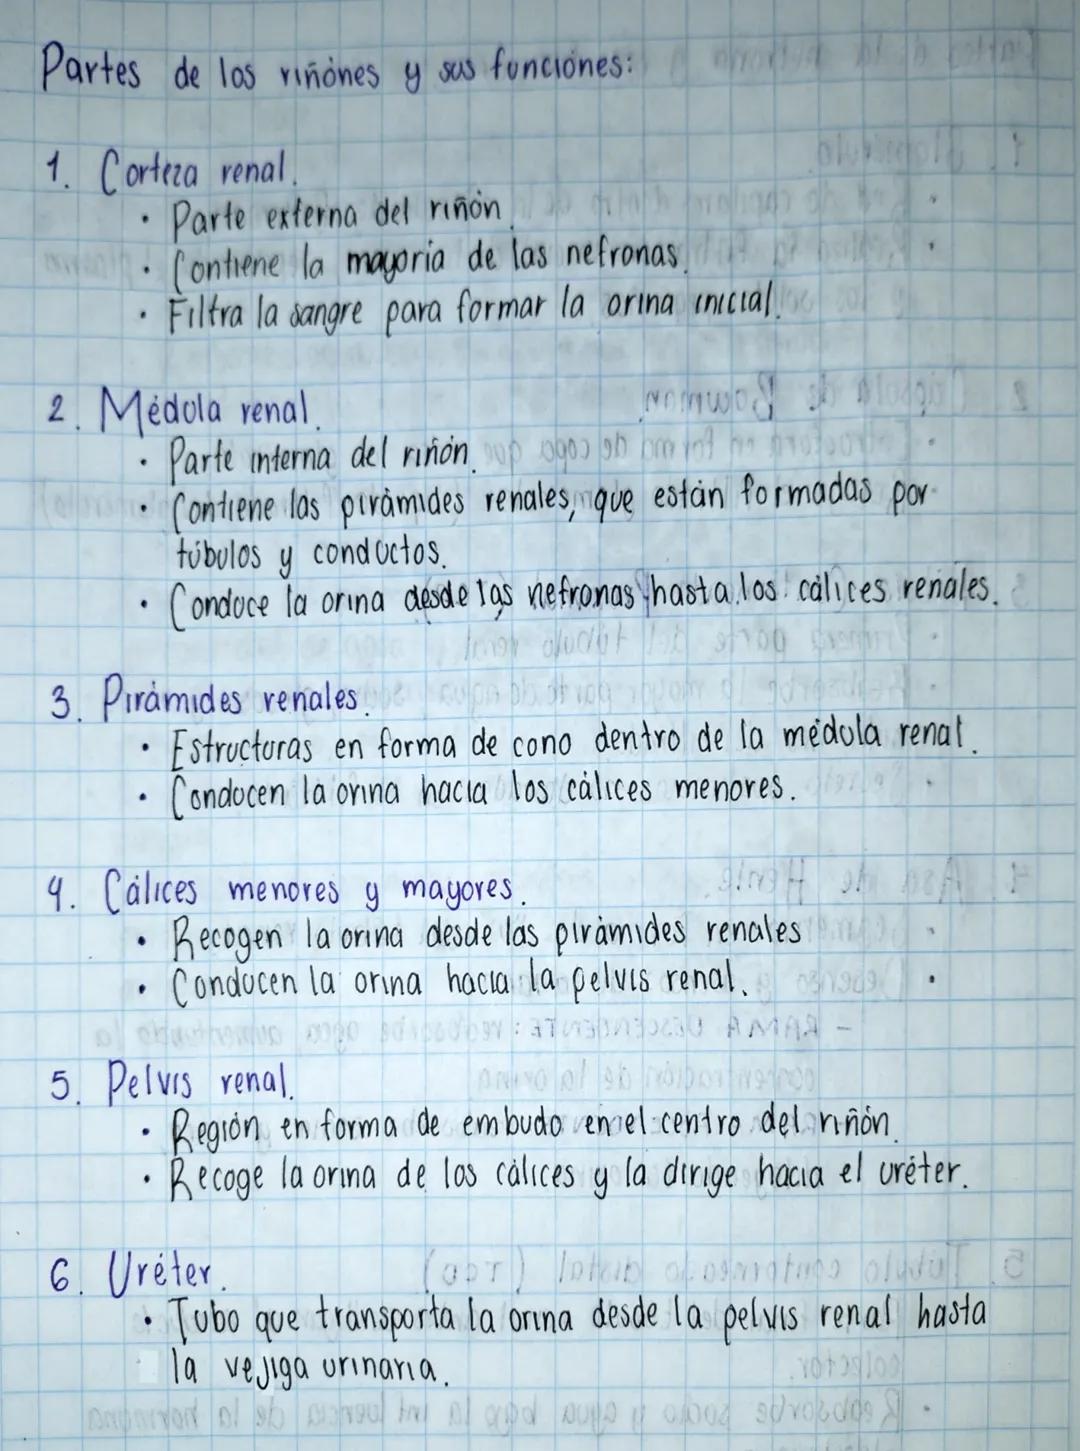 Partes de los riñones y sus funciones:
1. Corteza renal.
• Parte externa del riñón.
• Contiene la mayoría de las nefronas.
• Filtra la sangre para formar la orina inicial.
2. Médula renal.
• Parte interna del riñón.
• Contiene las pirámides renales, que están formadas por
túbulos y conductos.
• Conduce la orina desde las nefronas hasta los cálices renales.
3. Pirámides renales.
• Estructuras en forma de cono dentro de la médula renal.
• Conducen la orina hacia los cálices menores.
4. Cálices menores y mayores.
• Recogen la orina desde las pirámides renales
• Conducen la orina hacia la pelvis renal.
5. Pelvis renal.
• Región en forma de embudo en el centro del riñón.
• Recoge la orina de los cálices y la dirige hacia el uréter.
6. Uréter.
• Tubo que transporta la orina desde la pelvis renal hasta
la vejiga urinaria.